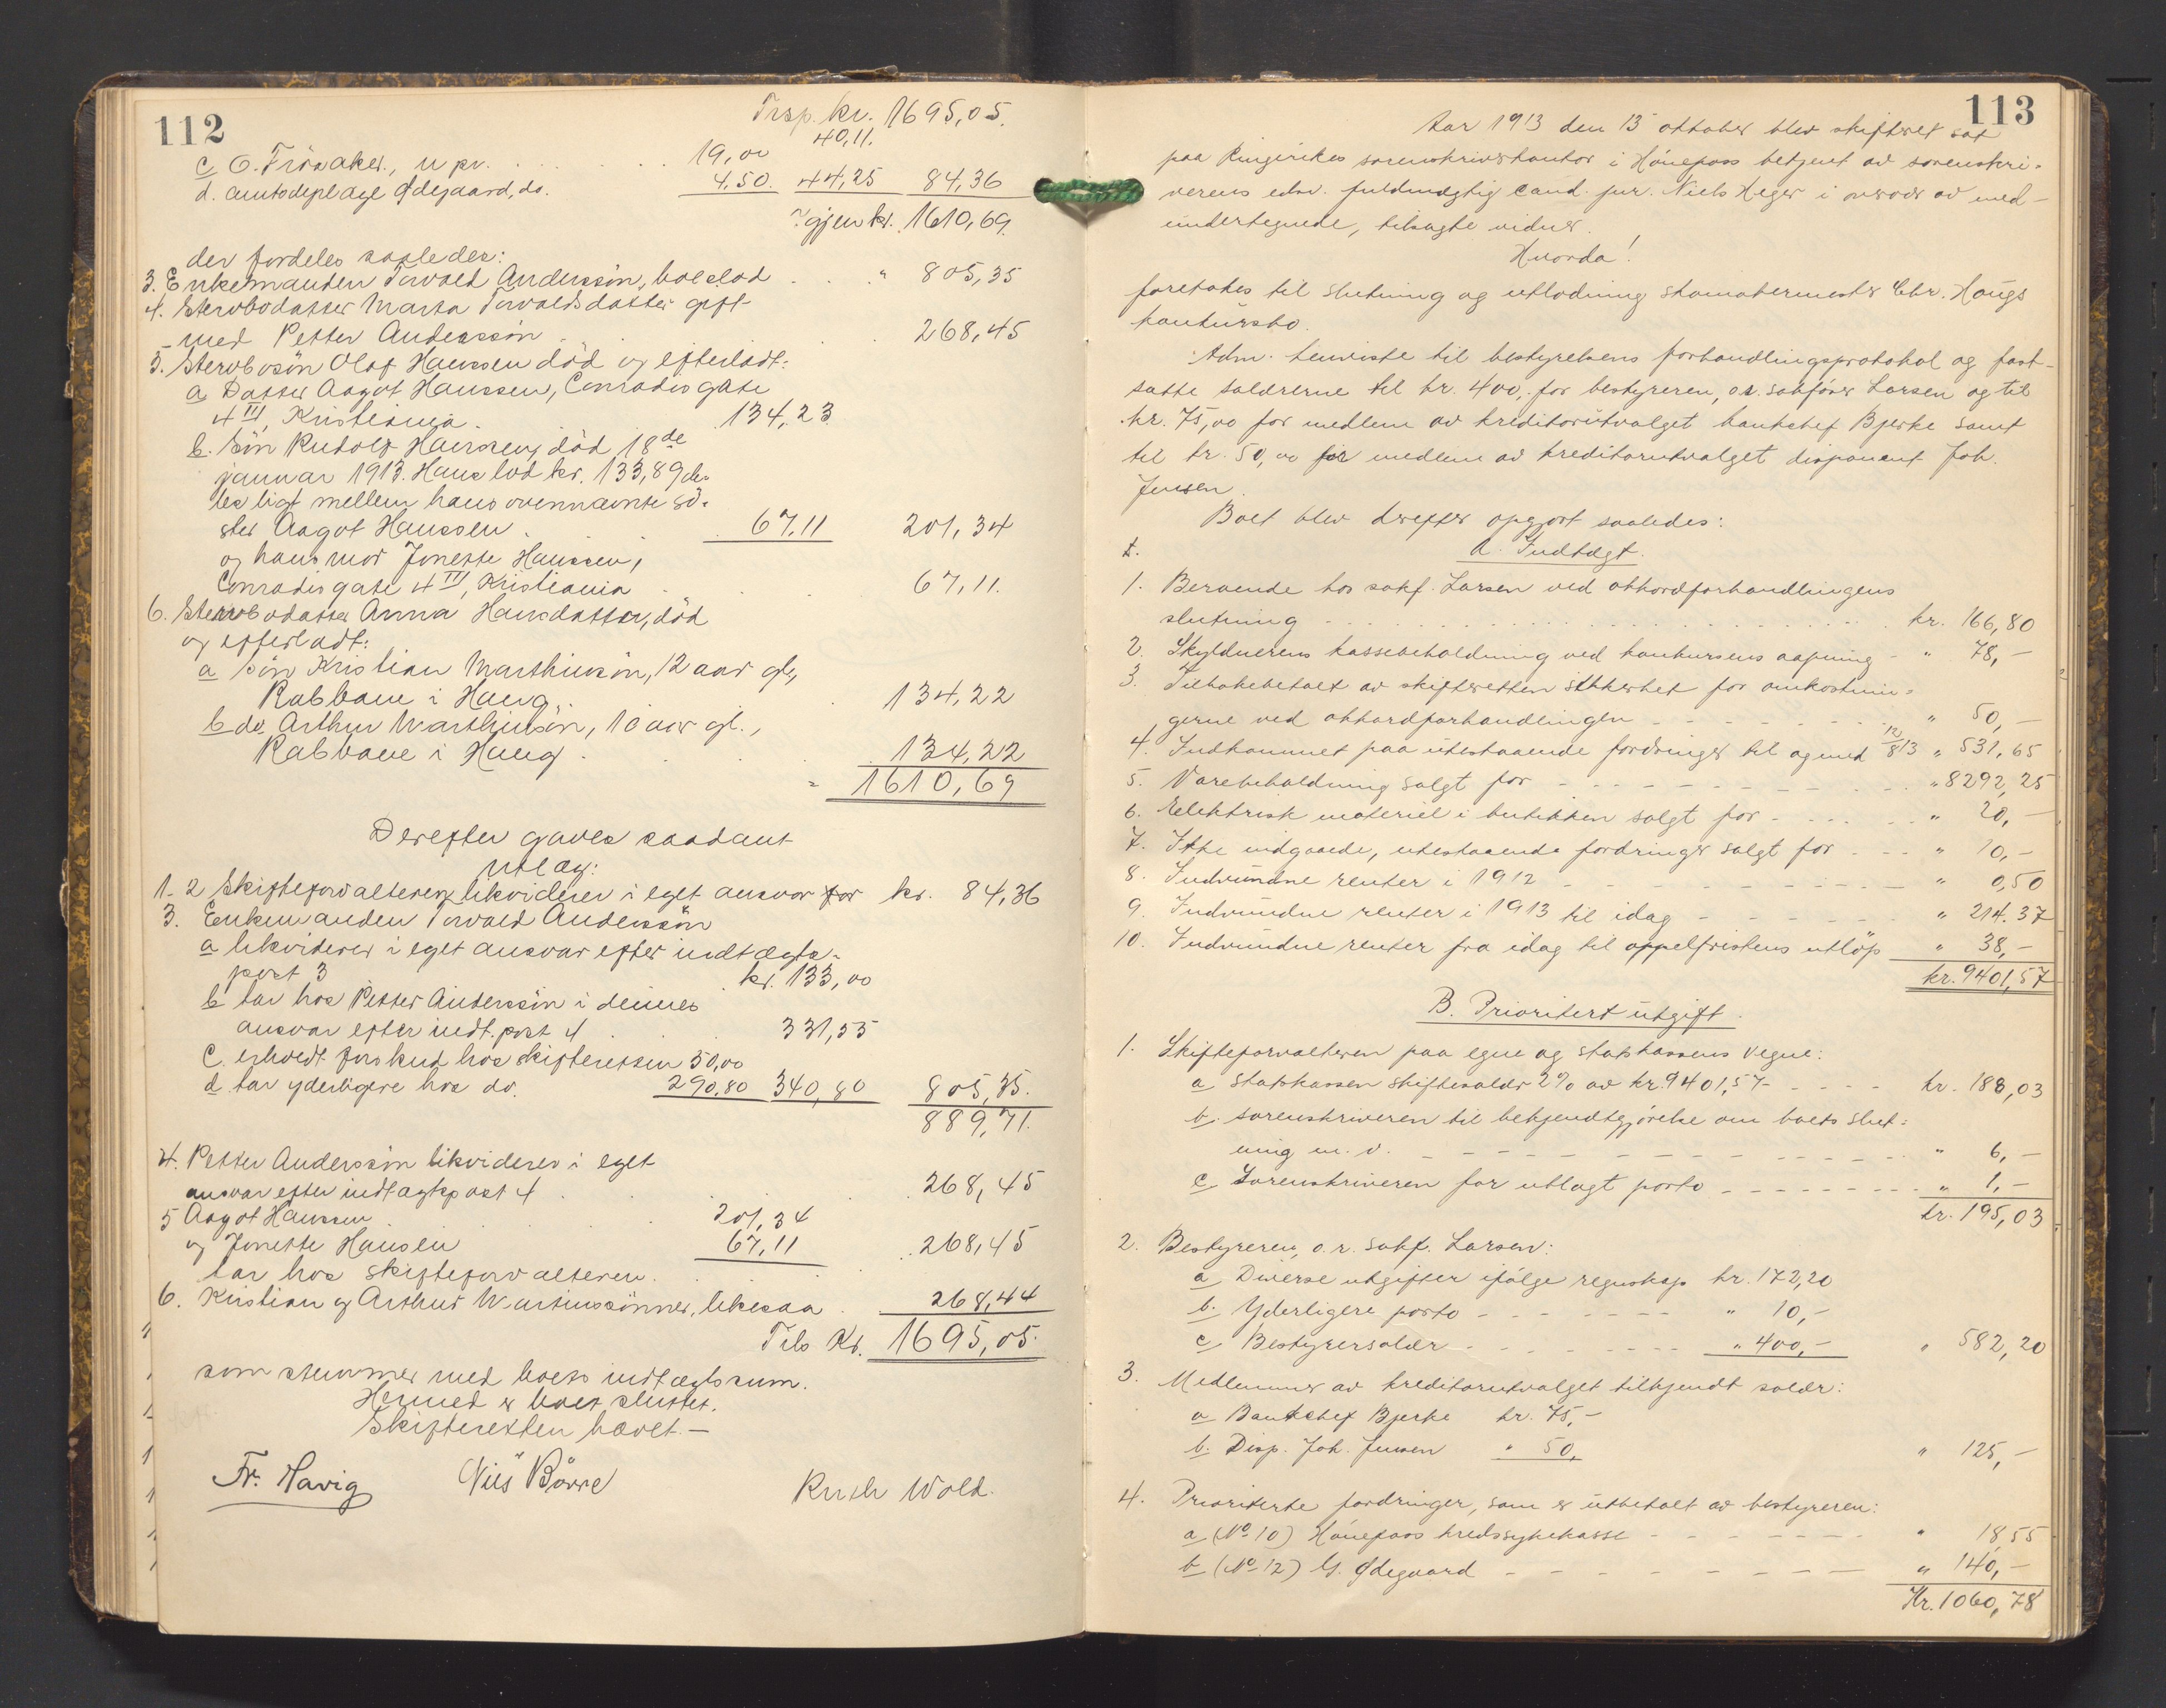 112
Trsp. kr. 1695,05.
40,11.
c O. Frösaker, u pv. . . . . . . 19,00
d. amtsdepl age Ødegaard, do. 4,50. 44,25 84,36
Igjen kr. 1610,69.
der fordeles saaledes:
3. Enkemanden Torvald Anderssön, boeslod . . . " 805,35
4. Stervbodatter Marta Torvaldsdatter gift
med Petter Anderssön . . . 268,45
5. Stervbosön Olaf Hanssen död og efterladt:
a Datter Aagot Hanssen, Conradis gate
4 III, Kristiania . . 134,23
b. Sön Rudolf Hanssen, död 18de
januar 1913. Hans lod kr. 133,89 de-
les ligt mellem hans ovennævnte sö-
ster Aagot Hanssen . 67,11 201,34
og hans mor Jonette Hanssen,
Conradis gate 4 III, Kristiania . . . 67,11.
6. Stervbodatter Anna Hansdatter, död
og efterladt:
a Sön Kristian Marthinsön, 12 aar gl.,
Rabbane i Haug . . . 134,22
b do. Arthur Marthinsön, 10 aar gl.,
Rabbane i Haug . . . 134,22
= 1610,69
Derefter gaves saadant
utlæg:
1-2 Skifteforvalteren likviderer i eget ansvar for kr. 84,36
3. Enkemanden Torvald Anderssön
a likviderer i eget ansvar efter indtægts-
post 3 . kr. 133,00
b tar hos Petter Anderssön i dennes
ansvar efter indt. post 4 . 331,55
c. erholdt forskud hos skifteretten 50,00
d tar yderligere hos do. 290,80 340,80 805,35.
889,71.
4. Petter Anderssön likviderer i eget
ansvar efter indtægtspost 4 . . . 268,45
5 Aagot Hanssen . . . 201,34
og Jonette Hansen 67,11 . 268,45
tar hos skifteforvalteren . . .
6. Kristian og Arthur Martinssönner, likesaa . 268,44
Tils Kr. 1695,05.
som stemmer med boets indtægtssum.
Hermed er boet sluttet.
Skifteretten hævet. —
Fr. Havig Nils Börre Ruth Wold.
113
Aar 1913 den 15 oktober blev skifteret sat
paa Ringerikes sorenskriverkontor i Hönefoss betjent av sorenskri-
verens edsv. fuldmægtig cand. jur. Niels Heger i overvær av med-
undertegnede, tilsagte vidner.
Hvorda!
foretokes til slutning og utlodning skomakermester Chr. Haugs
konkursbo.
Adm. henviste til bestyrelsens forhandlingsprotokol og fast-
satte salærerne til kr. 400,- for bestyreren, o.r. sakförer Larsen og til
kr. 75,00 for medlem av kreditorutvalget bankchef Bjerke samt
til kr. 50,00 for medlem av kreditorutvalget disponent Joh.
Jensen.
Boet blev derefter opgjort saaledes:
I. A. Indtægt.
1. Beroende hos sakf. Larsen ved akkordforhandlingens
slutning - - - - - kr. 166,80
2. Skyldnerens kassebeholdning ved konkursens aapning - " 78,—
3. Tilbakebetalt av skifteretten sikkerhet for omkostnin-
gerne ved akkordforhandlingen - - - - - " 50,—
4. Indkommet paa utestaaende fordringer til og med 12/8 13 " 531,65
5. Varebeholdning solgt for - - - - - " 8292,25
6. Elektrisk materiel i butikken solgt for - - - - " 20,—
7. Ikke indgaaede, utestaaende fordringer solgt for - - - " 10,—
8. Indvundne renter i 1912 - - - - - " 0,50
9. Indvundne renter i 1913 til idag - - - - - " 214.37
10. Indvundne renter fra idag til appelfristens utlöp " 38,—
kr. 9401,57
B. Prioritert utgift.
1. Skifteforvalteren paa egne og statskassens vegne:
a statskassen skiftesalær 2% av kr. 9401,57 - - - - kr. 188,03
b. sorenskriveren til bekjendtgjörelse om boets slut-
ning m. v. - - - - - " 6,—
c Sorenskriveren for utlagt porto - - - - - " 1,—
kr. 195,03
2. Bestyreren, o. r. sakf. Larsen:
a Diverse utgifter ifölge regnskap kr. 172,20
b. Yderligere porto - - - - - " 10,—
c Bestyrersalær - - - - - " 400,— " 582,20
3. Medlemmer av kreditorutvalget tilkjendt salær:
a Bankchef Bjerke kr. 75,—
b. Disp. Joh. Jensen " 50, " 125,—
4. Prioriterte fordringer, som er utbetalt av bestyreren:
a (No 10) Hönefoss kredssykekasse - - - - - " 18,55
b (No 12) G. Ødegaard - - - - - " 140,—
Kr. 1060,78